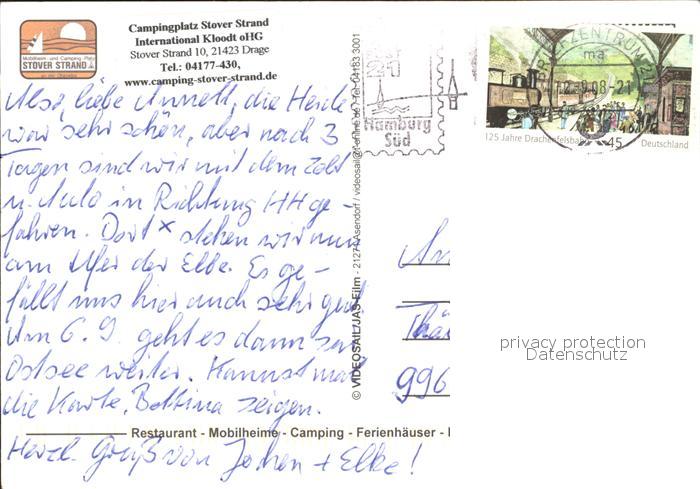 Campingplatz Stover Strand
International Kloodt oHG
Stover Strand 10, 21423 Drage
Tel.: 04177-430,
www.camping-stover-strand.de
Mobilheim- und Camping-Platz
STOVER STRAND
Also, liebe Annett, die Heide
war sehr schön, aber nach 3
Tagen sind wir mit dem Zelt
u. Auto in Richtung HH ge-
fahren. Dort x stehen wir nun
am Ufer der Elbe. Es ge-
fällt uns hier auch sehr gut.
Am 6. 9. geht es dann zur
Ostsee weiter. Kannst mal
die Karte, Bettina zeigen.
Herzl. Grüße von Jochen + Elke!
Restaurant - Mobilheime - Camping - Ferienhäuser -
© VIDEOSAIL/JAS-Film - 21271 Asendorf / videosail@t-online.de / Tel 04183 3001
21
Hamburg
Süd
BRIEFZENTRUM 21
ma
-21
125 Jahre Drachenfelsbahn
45
Deutschland
An
Thü
996
privacy protection
Datenschutz